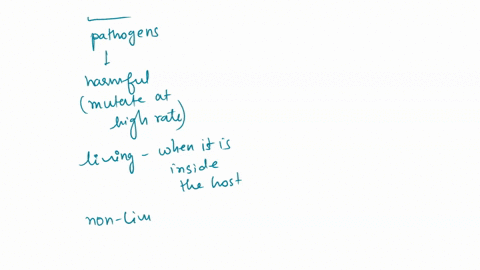 pathogens
harmful
(mutate at
high rate)
living - when it is
inside
the host
non-liv